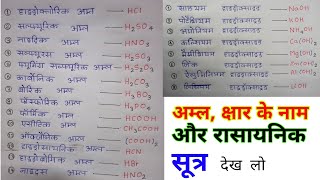 ① हाइड्रोक्लोरिक अम्ल — HCl
② सल्फ्यूरिक अम्ल — H₂SO₄
③ नाइट्रिक अम्ल — HNO₃
④ सल्फ्यूरस अम्ल — H₂SO₃
अम्ल — H₂S₂O₇
⑥ कार्बोनिक अम्ल — H₂CO₃
⑦ बोरिक अम्ल — H₃BO₃
⑧ फॉस्फोरिक अम्ल — H₃PO₄
⑨ फॉर्मिक अम्ल — HCOOH
⑩ एसीटिक अम्ल — CH₃COOH
⑪ ऑक्जैलिक अम्ल — (COOH)₂
⑫ हाइड्रोसायनिक अम्ल — HCN
⑬ हाइड्रोब्रोमिक अम्ल — HBr
⑭ नाइट्रस अम्ल — HNO₂
① सोडियम हाइड्रोक्साइड — NaOH
② पोटैशियम हाइड्रोक्साइड — KOH
③ अमोनियम हाइड्रोक्साइड — NH₄OH
④ कैल्शियम हाइड्रोक्साइड — Ca(OH)₂
⑤ मैग्नीशियम हाइड्रोक्साइड
⑥ जिंक हाइड्रोक्साइड
हाइड्रोक्साइड
हाइड्रोक्साइड — LiOH
अम्ल, क्षार के नाम
और रासायनिक
सूत्र देख लो